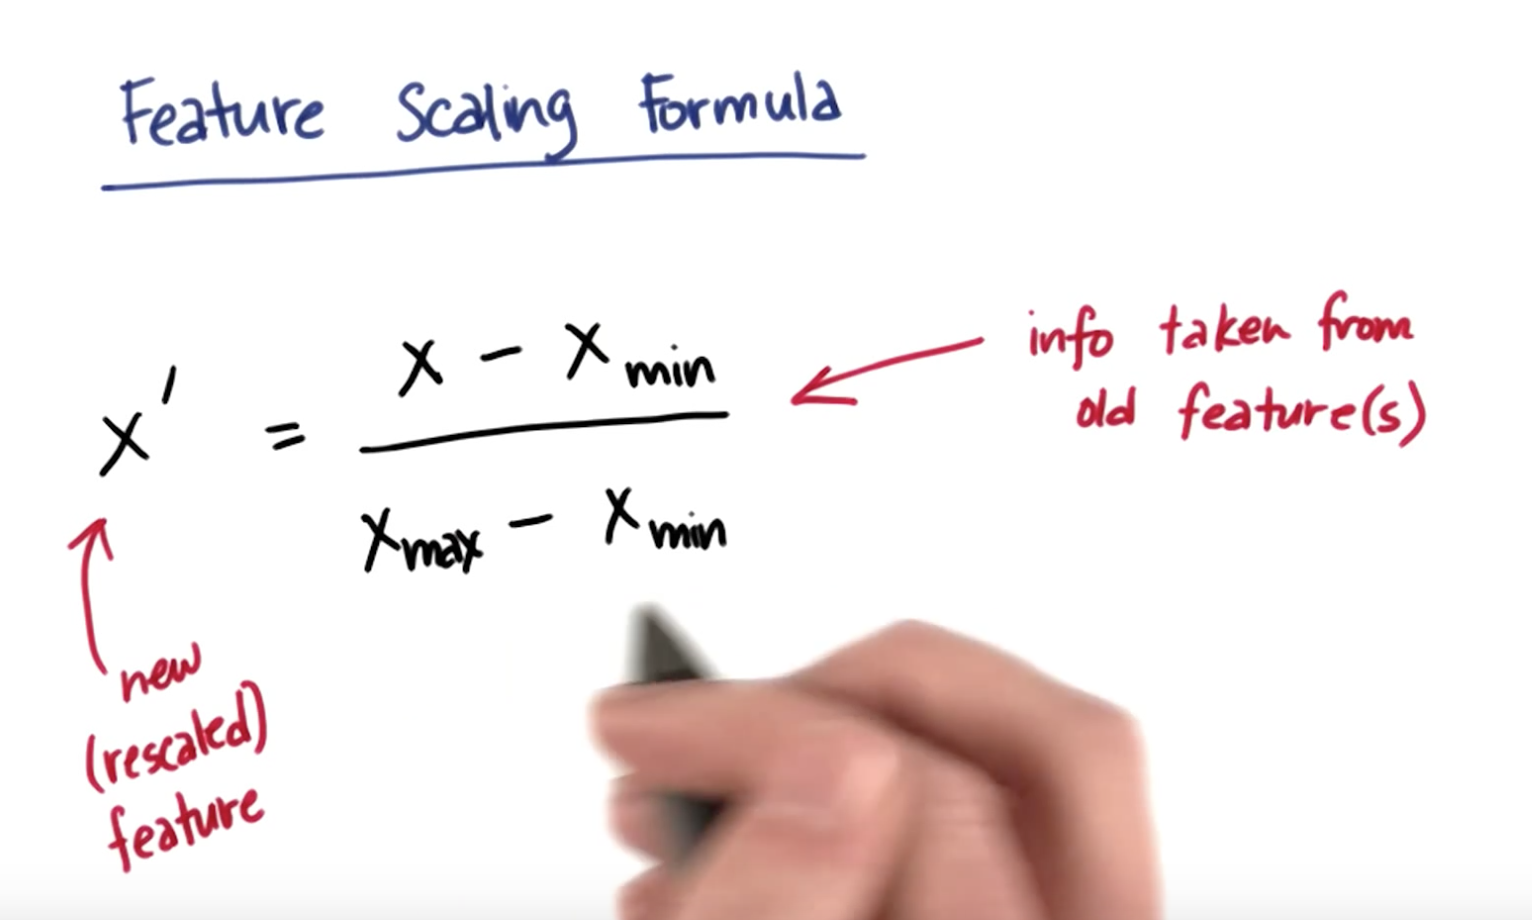 Feature Scaling Formula
x' = x - xmin
xmax - xmin
info taken from
old feature(s)
new
(rescaled)
feature